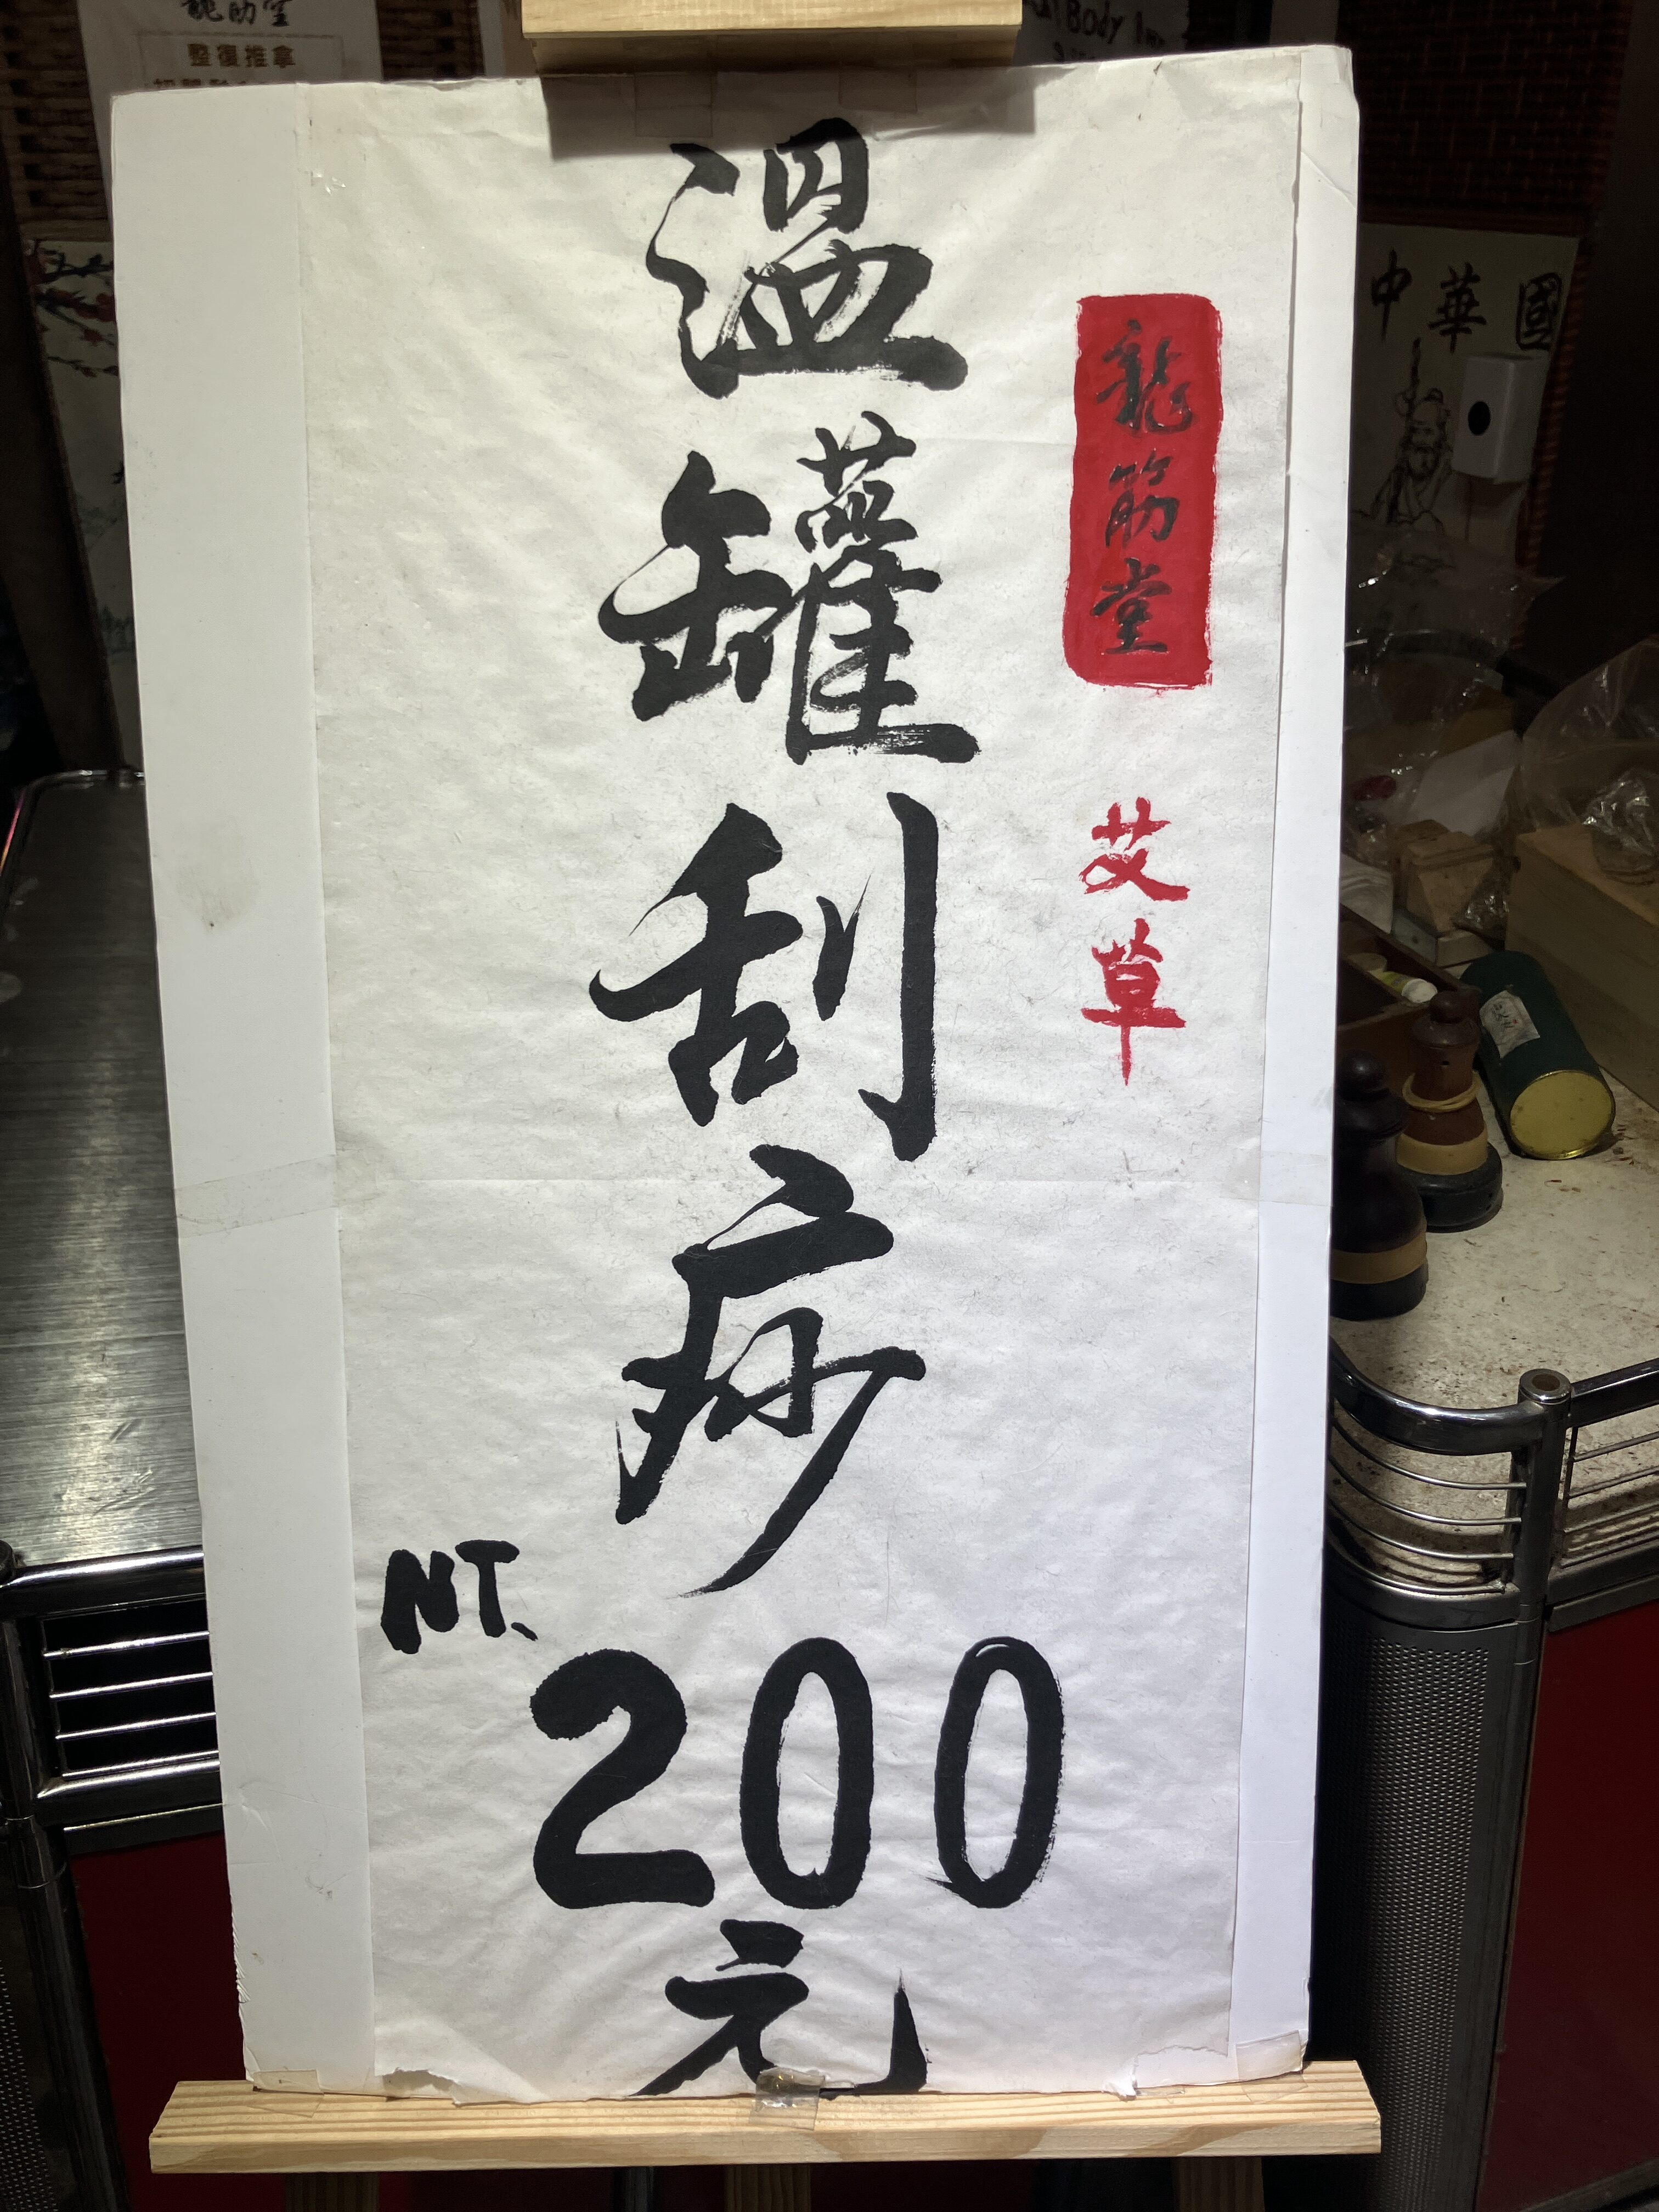 龍筋堂
整復推拿
Body
中華國
龍筋堂
艾草
溫罐刮痧
NT.
200
元